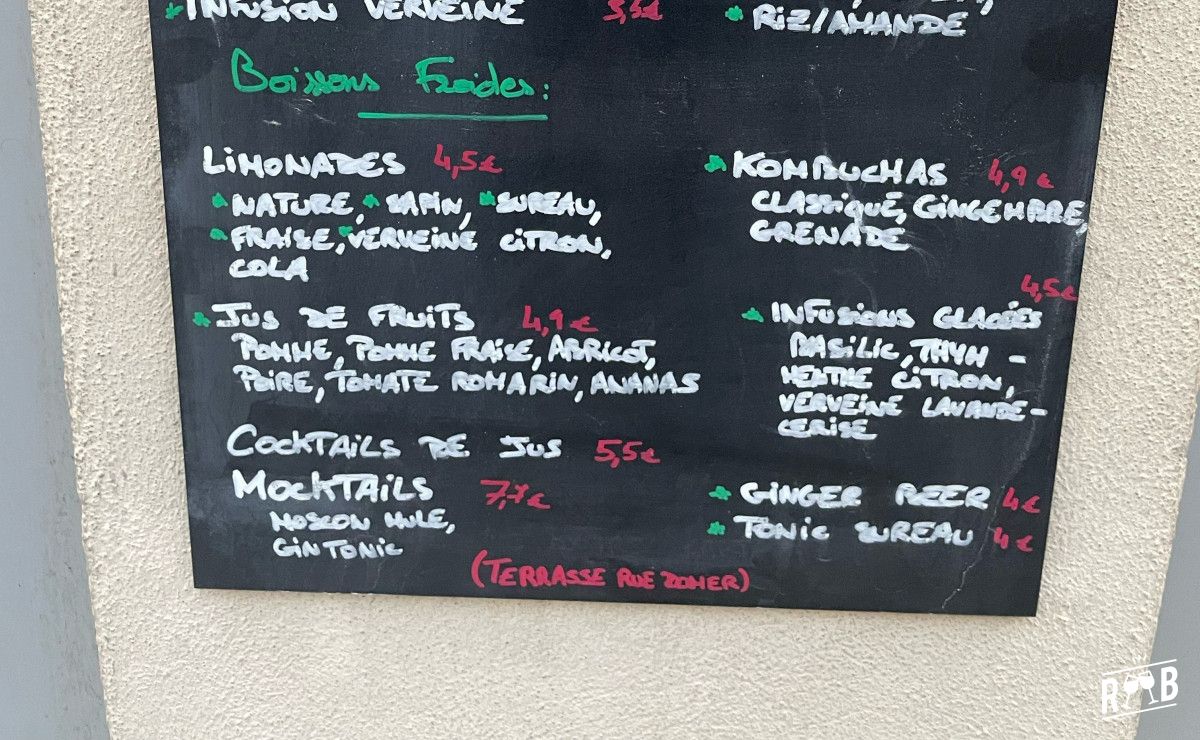 INFUSION VERVEINE 5,5€
RIZ/AMANDE
Boissons Froides:
LIMONADES 4,5€
NATURE, SAPIN, SUREAU,
FRAISE, VERVEINE CITRON,
COLA
JUS DE FRUITS 4,9€
POMME, POMME FRAISE, ABRICOT,
POIRE, TOMATE ROMARIN, ANANAS
COCKTAILS DE JUS 5,5€
MOCKTAILS 7,7€
MOSCOW MULE,
GIN TONIC
KOMBUCHAS 4,9€
CLASSIQUE, GINGEMBRE,
GRENADE
4,5€
INFUSIONS GLACÉES
BASILIC, THYM -
MENTHE CITRON,
VERVEINE LAVANDE-
CERISE
GINGER BEER 4€
TONIC SUREAU 4€
(TERRASSE RUE ZOMER)
R B